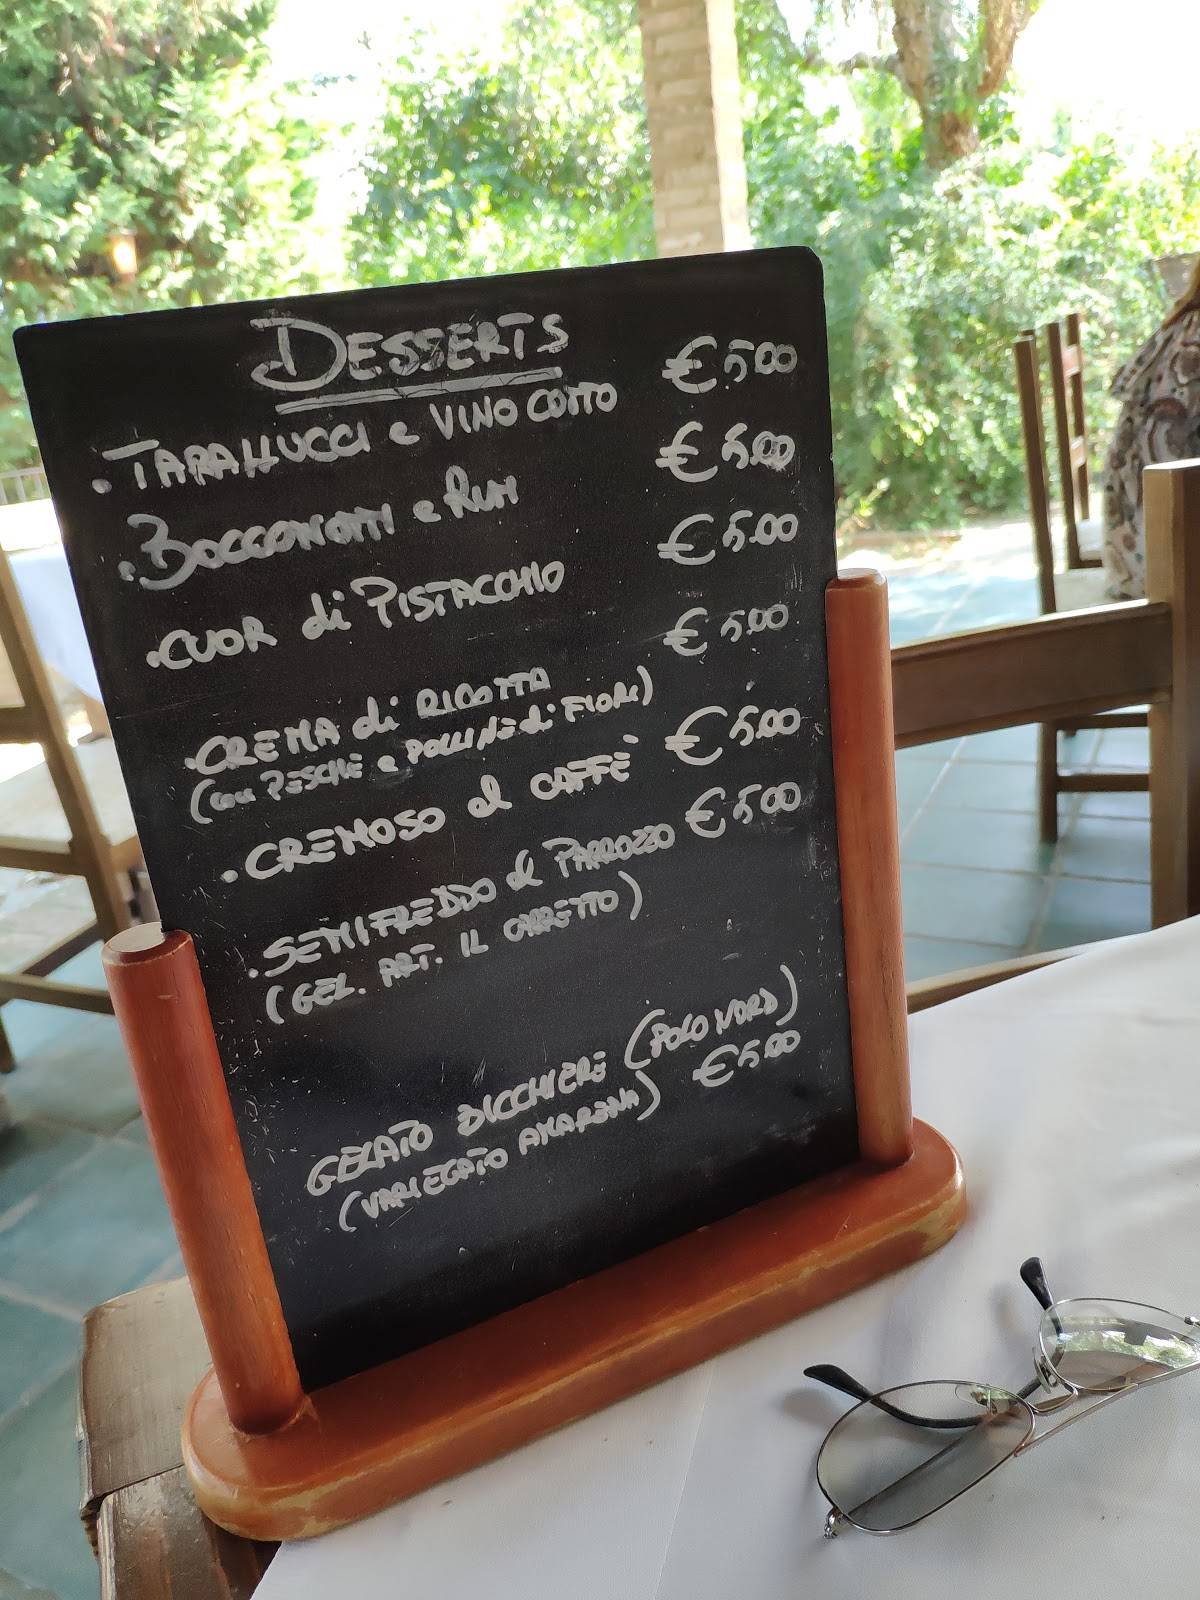 DESSERTS
. TARALLUCCI e VINO COTTO € 5.00
. BOCCONOTTI e RUM € 5.00
. CUOR di PISTACCHIO € 5.00
. CREMA di RICOTTA € 5.00
(con PESCHE e POLLINE di FIORI)
. CREMOSO al CAFFÈ € 5.00
. SEMIFREDDO al PARROZZO € 5.00
(GEL. ART. IL CARRETTO)
GELATO BICCHIERE (POLO NORD)
(VARIEGATO AMARENA) € 5.00